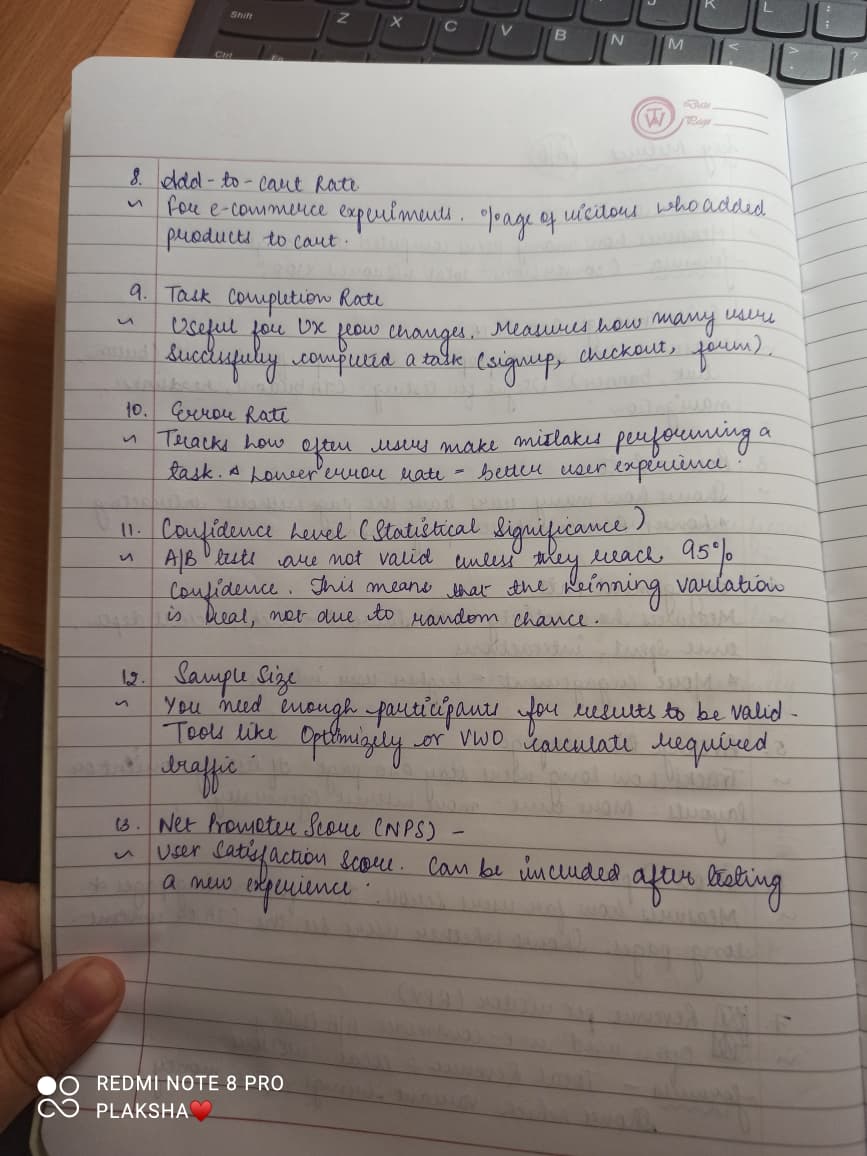 Shift
Z X C V B N M K L
< >
Ctrl
TW
Date
Page
8. Add-to-cart Rate
~ For e-commerce experiments. %age of visitors who added
products to cart.
9. Task Completion Rate
~ Useful for UX flow changes. Measures how many users
successfully completed a task (signup, checkout, form).
10. Error Rate
~ Tracks how often users make mistakes performing a
task. Lower error rate = better user experience.
11. Confidence Level (Statistical Significance)
~ A/B tests are not valid unless they reach 95%
confidence. This means that the winning variation
is real, not due to random chance.
12. Sample Size
~ You need enough participants for results to be valid.
Tools like Optimizely or VWO calculate required
traffic.
13. Net Promoter Score (NPS) -
~ User Satisfaction Score. Can be included after testing
a new experience.
REDMI NOTE 8 PRO
PLAKSHA❤️